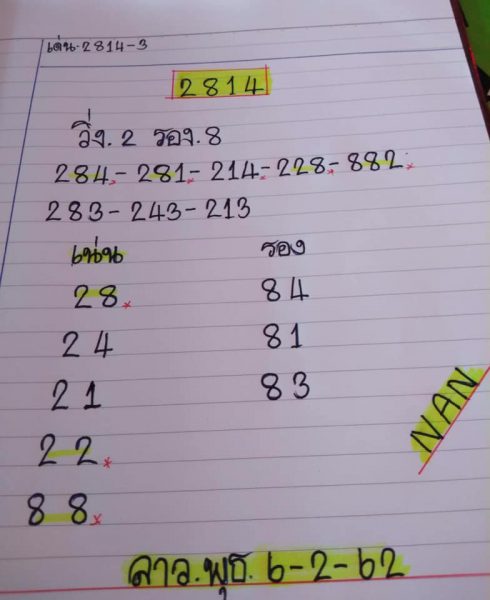 เด่น.2814-3
2814
วิ่ง.2 รอง.8
284-281-214-228-882
283-243-213
เน่น รอง
28 84
24 81
21 83
22
88
NAN
ลาว.พุธ. 6-2-62